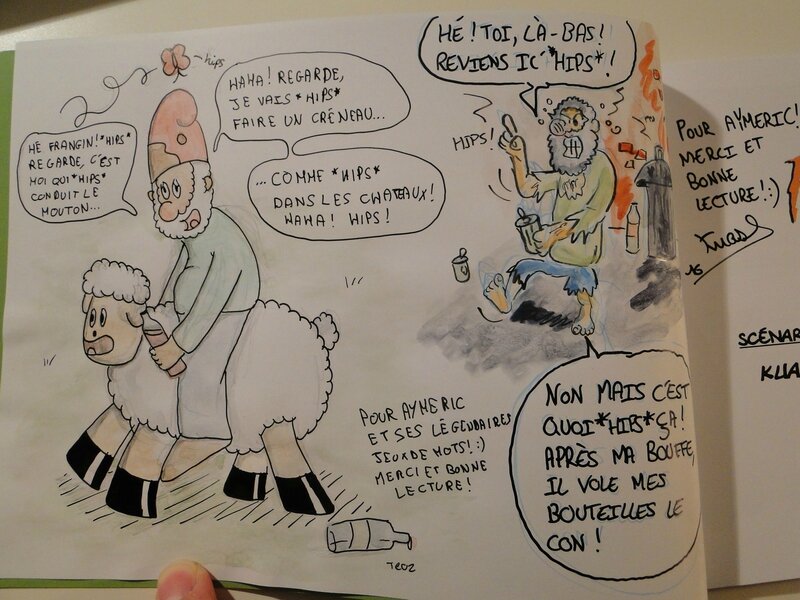 hips
HAHA! REGARDE,
JE VAIS *HIPS*
FAIRE UN CRÉNEAU...
HÉ FRANGIN! *HIPS*
REGARDE, C'EST
MOI QUI *HIPS*
CONDUIT LE
MOUTON...
...COMME *HIPS*
DANS LES CHATEAUX!
HAHA! HIPS!
HÉ! TOI, LÀ-BAS!
REVIENS IC' *HIPS*!
HIPS!
NON MAIS C'EST
QUOI *HIPS* ÇA!
APRÈS MA BOUFFE,
IL VOLE MES
BOUTEILLES LE
CON!
POUR AYMERIC
ET SES LÉGENDAIRES
JEUX DE MOTS! :)
MERCI ET BONNE
LECTURE!
TROZ
POUR AYMERIC!
MERCI ET
BONNE
LECTURE! :)
SCÉNAR